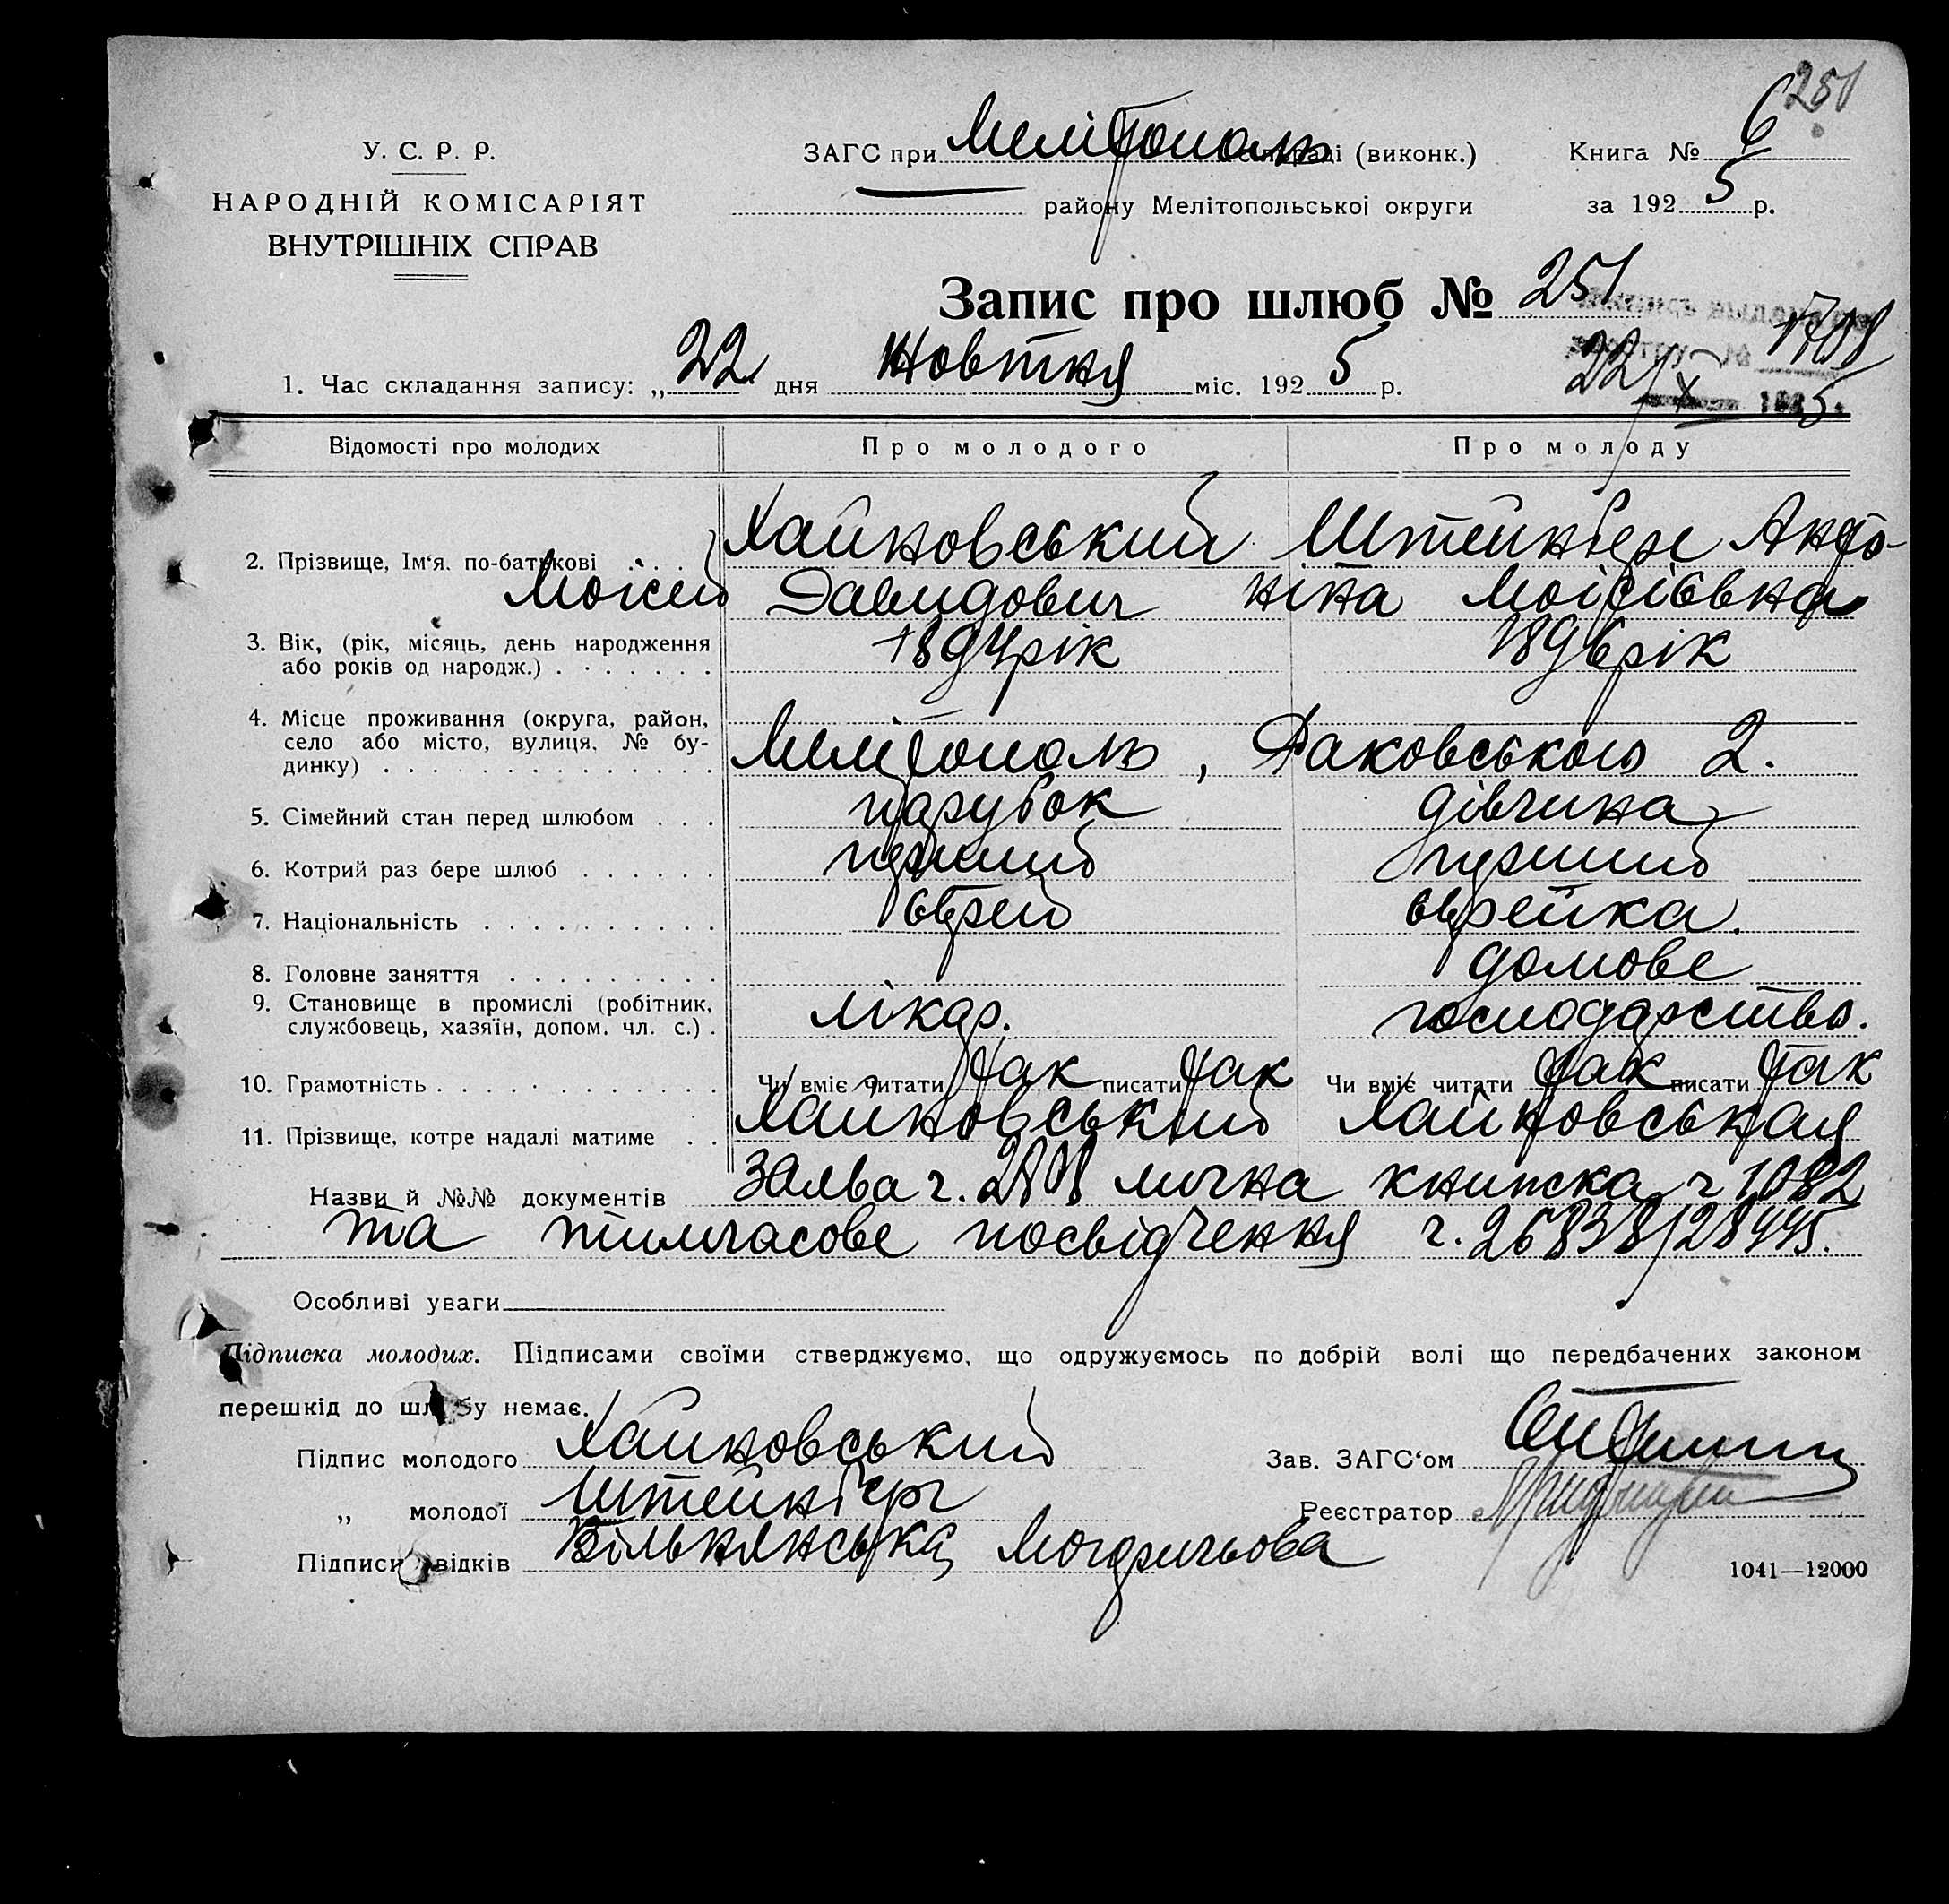 251
У. С. Р. Р.
НАРОДНІЙ КОМІСАРІЯТ
ВНУТРІШНІХ СПРАВ
ЗАГС при Мелітополь (виконк.)
району Мелітопольської округи
Книга № 6
за 1925 р.
Запис про шлюб № 251
1. Час складання запису: „22 дня Жовтня міс. 1925 р.
22/X 5
Відомості про молодих Про молодого Про молоду
2. Прізвище, Ім'я. по-батькові . . . . Хайновський Штейнберг Анто-
Мойсей Давидович ніна Мойсіївна
3. Вік, (рік, місяць, день народження
або років од народж.) . . . . . . . 1894 рік 1896 рік
4. Місце проживання (округа, район,
село або місто, вулиця, № бу-
динку) . . . . . . . . . . . . . . Мелітополь, Раковського 2.
5. Сімейний стан перед шлюбом . . . парубок дівчина
6. Котрий раз бере шлюб . . . . . . перший перший
7. Національність . . . . . . . . . . єврей єврейка.
8. Головне заняття . . . . . . . . . домове
9. Становище в промислі (робітник,
службовець, хазяїн, допом. чл. с.) . лікар. господарство.
10. Грамотність . . . . . . . . . . . . Чи вміє читати так писати так Чи вміє читати так писати так
11. Прізвище, котре надалі матиме . . Хайновський Хайновськая
Назви й №№ документів ч. лична книжка ч 1082
та тимчасове посвідчення ч. 26838/28445.
Особливі уваги
Підписка молодих. Підписами своїми стверджуємо, що одружуємось по добрій волі що передбачених законом
перешкід до шлюбу немає.
Підпис молодого Хайновський
Зав. ЗАГС'ом
„ молодої Штейнберг
Реєстратор
Підписи свідків
1041—12000